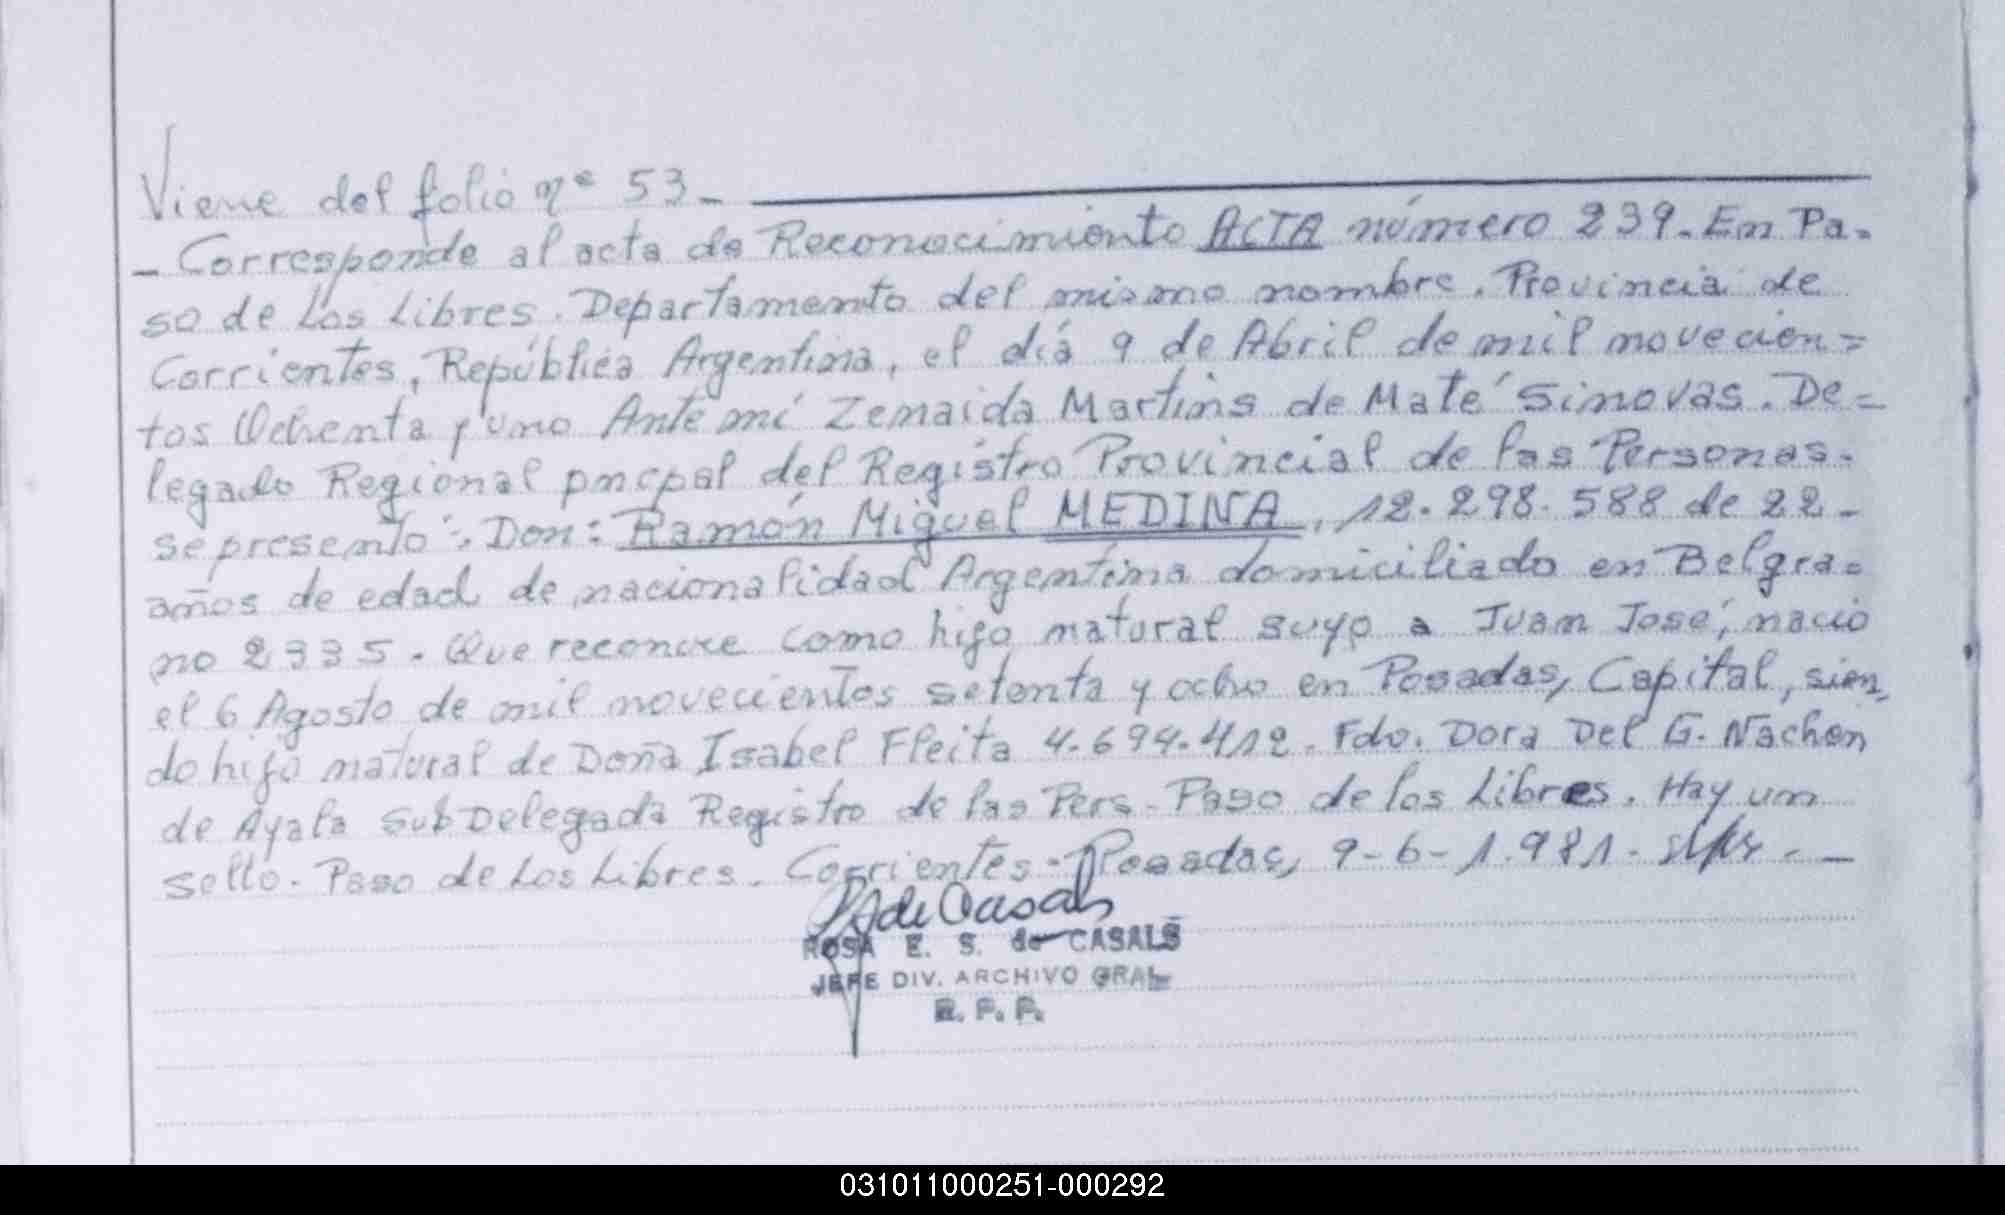 Viene del folio nº 53 -
- Corresponde al acta de Reconocimiento ACTA número 239. En Pa-
so de Los Libres. Departamento del mismo nombre. Provincia de
Corrientes, República Argentina, el día 9 de Abril de mil novecien=
tos Ochenta y uno Ante mí Zenaida Martins de Maté Sinovas. De=
legado Regional pncpal del Registro Provincial de las Personas.
se presentó: Don: Ramón Miguel MEDINA, 12.298.588 de 22-
años de edad de nacionalidad Argentina domiciliado en Belgra=
no 2335. Que reconoce como hijo natural suyo a Juan José, nació
el 6 Agosto de mil novecientos setenta y ocho en Posadas, Capital, sien,
do hijo natural de Doña Isabel Fleita 4.694.412. Fdo. Dora Del G. Nachon
de Ayala SubDelegada Registro de las Pers. Paso de los Libres. Hay un
sello. Paso de Los Libres. Corrientes - Posadas, 9-6-1.981.
de Casals
ROSA E. S. de CASALS
JEFE DIV. ARCHIVO GRAL
R. P. P.
031011000251-000292